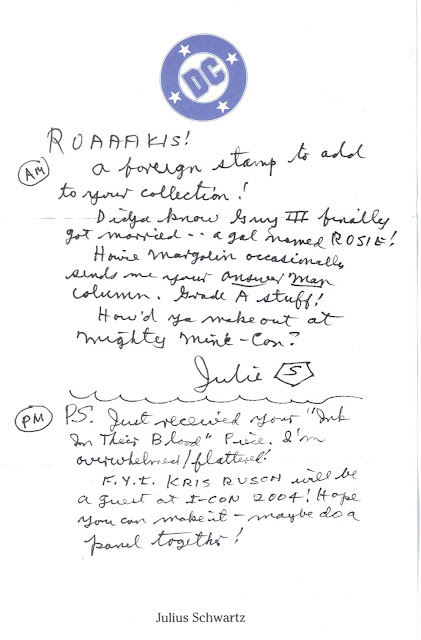 DC
ROAAAKIS!
AM
a foreign stamp to add
to your collection!
Didja know Guy III finally
got married -- a gal named ROSIE!
Howie Margolin occasionally
sends me your Answer Man
column. Grade A stuff!
How'd ya make out at
Mighty Mini-Con?
Julie S
PM
P.S. Just received your "Ink
In Their Blood" Piece. I'm
overwhelmed/flattered!
F.Y.I. KRIS RUSCH will be
a guest at I-CON 2004! Hope
you can make it - maybe do a
panel together!
Julius Schwartz